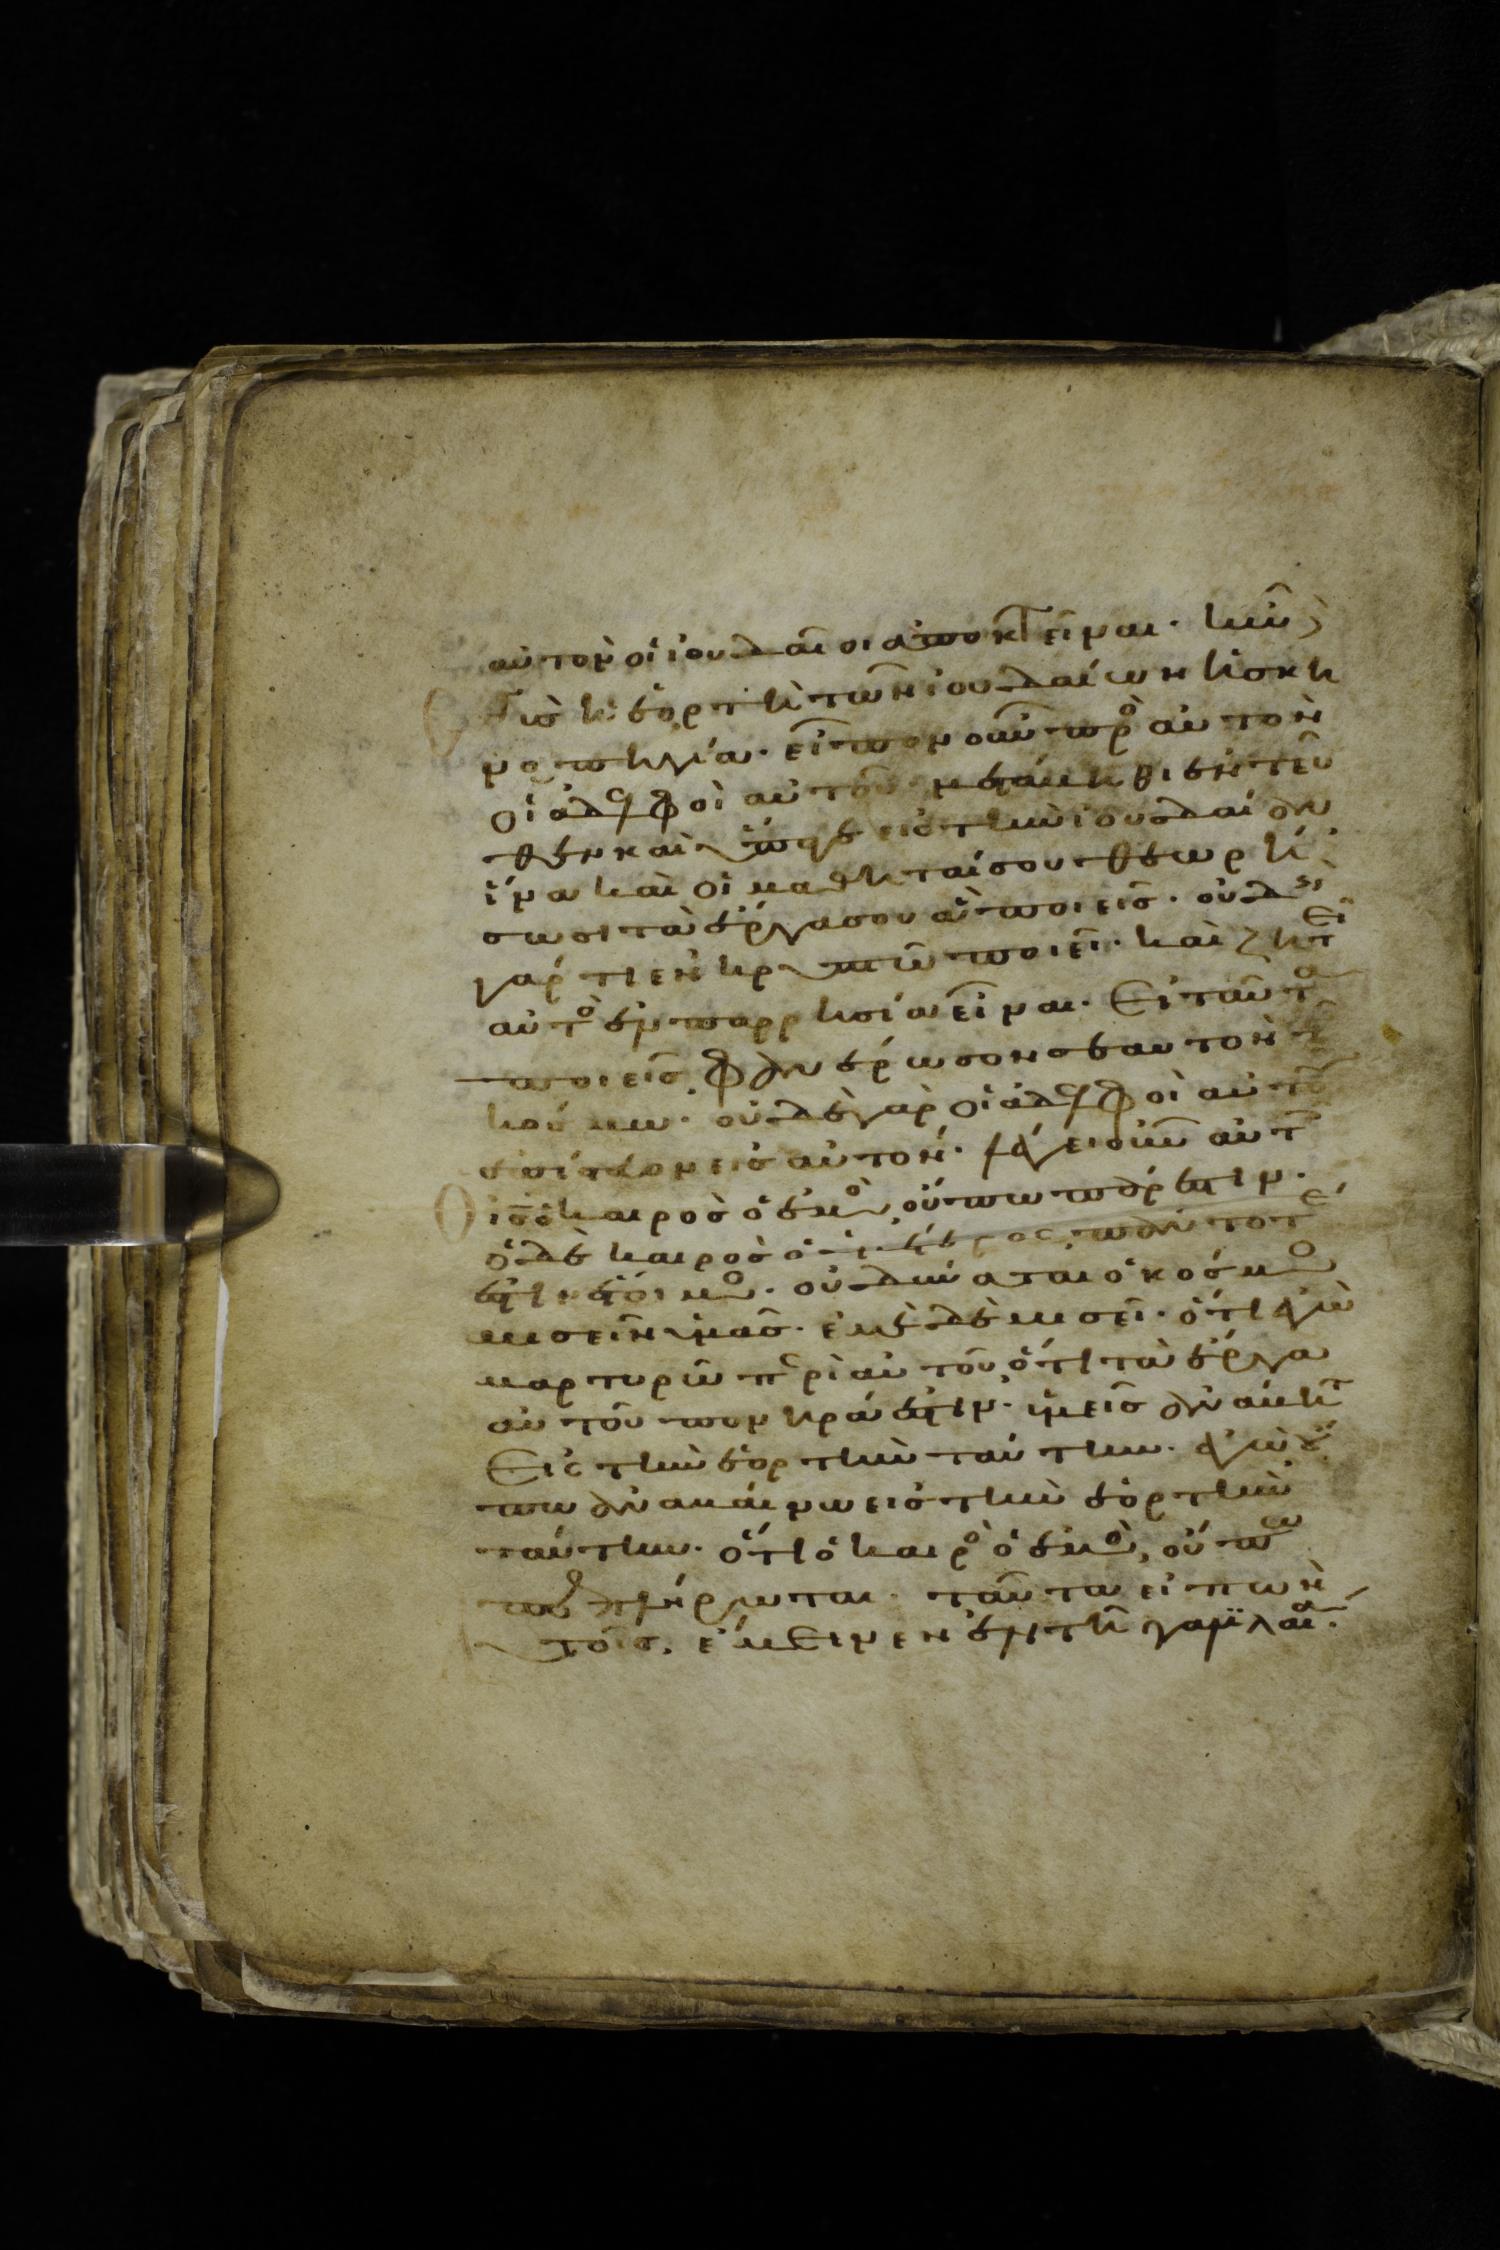 αὐτὸν οἱ ἰουδαῖοι ἀποκτεῖναι. ἦν δὲ
γγὺς ἡ ἑορτὴ τῶν ἰουδαίων ἡ σκη
νοπηγία. εἶπον οὖν πρὸ αὐτὸν
οἱ ἀδελφοὶ αὐτοῦ μετάβηθι ἐντεῦ
θεν καὶ ὕπαγε εἰς τὴν ἰουδαίαν
ἵνα καὶ οἱ μαθηταί σου θεωρή
σωσι τὰ ἔργα σου ἃ ποιεῖς. οὐδεὶς
γάρ τι ἐν κρυπτῶ ποιεῖ. καὶ ζητεῖ
αὐτὸ ἐν παρρησία εἶναι. Εἰ ταῦτα
ποιεῖς, φανέρωσον σεαυτὸν τῶ
κόσμω. οὐδὲ γὰρ οἱ ἀδελφοὶ αὐτοῦ
ἐπίστευον εἰς αὐτόν. λέγει οὖν αὐτοῖς
Ὁ ις ὁ καιρὸς ὁ ἐμὸ, οὔπω πάρεστιν.
ὁ δὲ καιρὸς ὁ ὑμέτερος, πάντοτέ
ἐστιν ἕτοιμο. οὐ δύναται ὁ κόσμο
μισεῖν ὑμᾶς. ἐμὲ δὲ μισεῖ. ὅτι ἐγὼ
μαρτυρῶ περὶ αὐτοῦ, ὅτι τὰ ἔργα
αὐτοῦ πονηρά ἐστιν. ὑμεῖς ἀνάβητε
Εἰς τὴν ἑορτὴν ταύτην. ἐγὼ οὔ
πω ἀναβαίνω εἰς τὴν ἑορτὴν
ταύτην. ὅτι ὁ καιρὸ ὁ ἐμὸ, οὔπω
πεπλήρωται. ταῦτα εἰπὼν
αὐτοῖς, ἔμεινεν ἐν τῆ γαλιλαία.